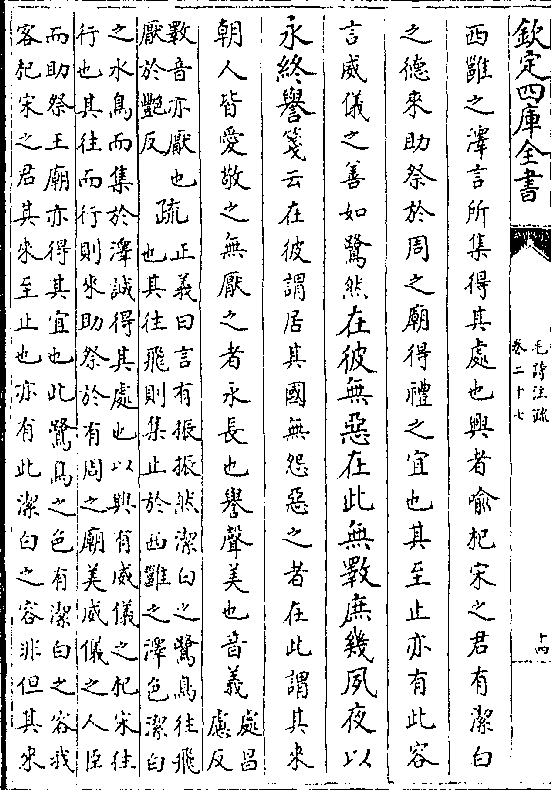 欽定四庫全書
毛詩注疏
卷二十七
十四
西雝之澤言所集得其處也興者喻杞宋之君有潔白
之德來助祭於周之廟得禮之宜也其至止亦有此容
言威儀之善如鷺然在彼無惡在此無斁庶幾夙夜以
永終譽箋云在彼謂居其國無怨惡之者在此謂其來
朝人皆愛敬之無厭之者永長也譽聲美也音義處昌
慮反
斁音亦厭也
厭於艷反
疏正義曰言有振振然潔白之鷺鳥往飛
也其往飛則集止於西雝之澤色潔白
之水鳥而集於澤誠得其處也以興有威儀之杞宋往
行也其往而行則來助祭於有周之廟美威儀之人臣
而助祭王廟亦得其宜也此鷺鳥之色有潔白之容我
客杞宋之君其來至止也亦有此潔白之容非但其來